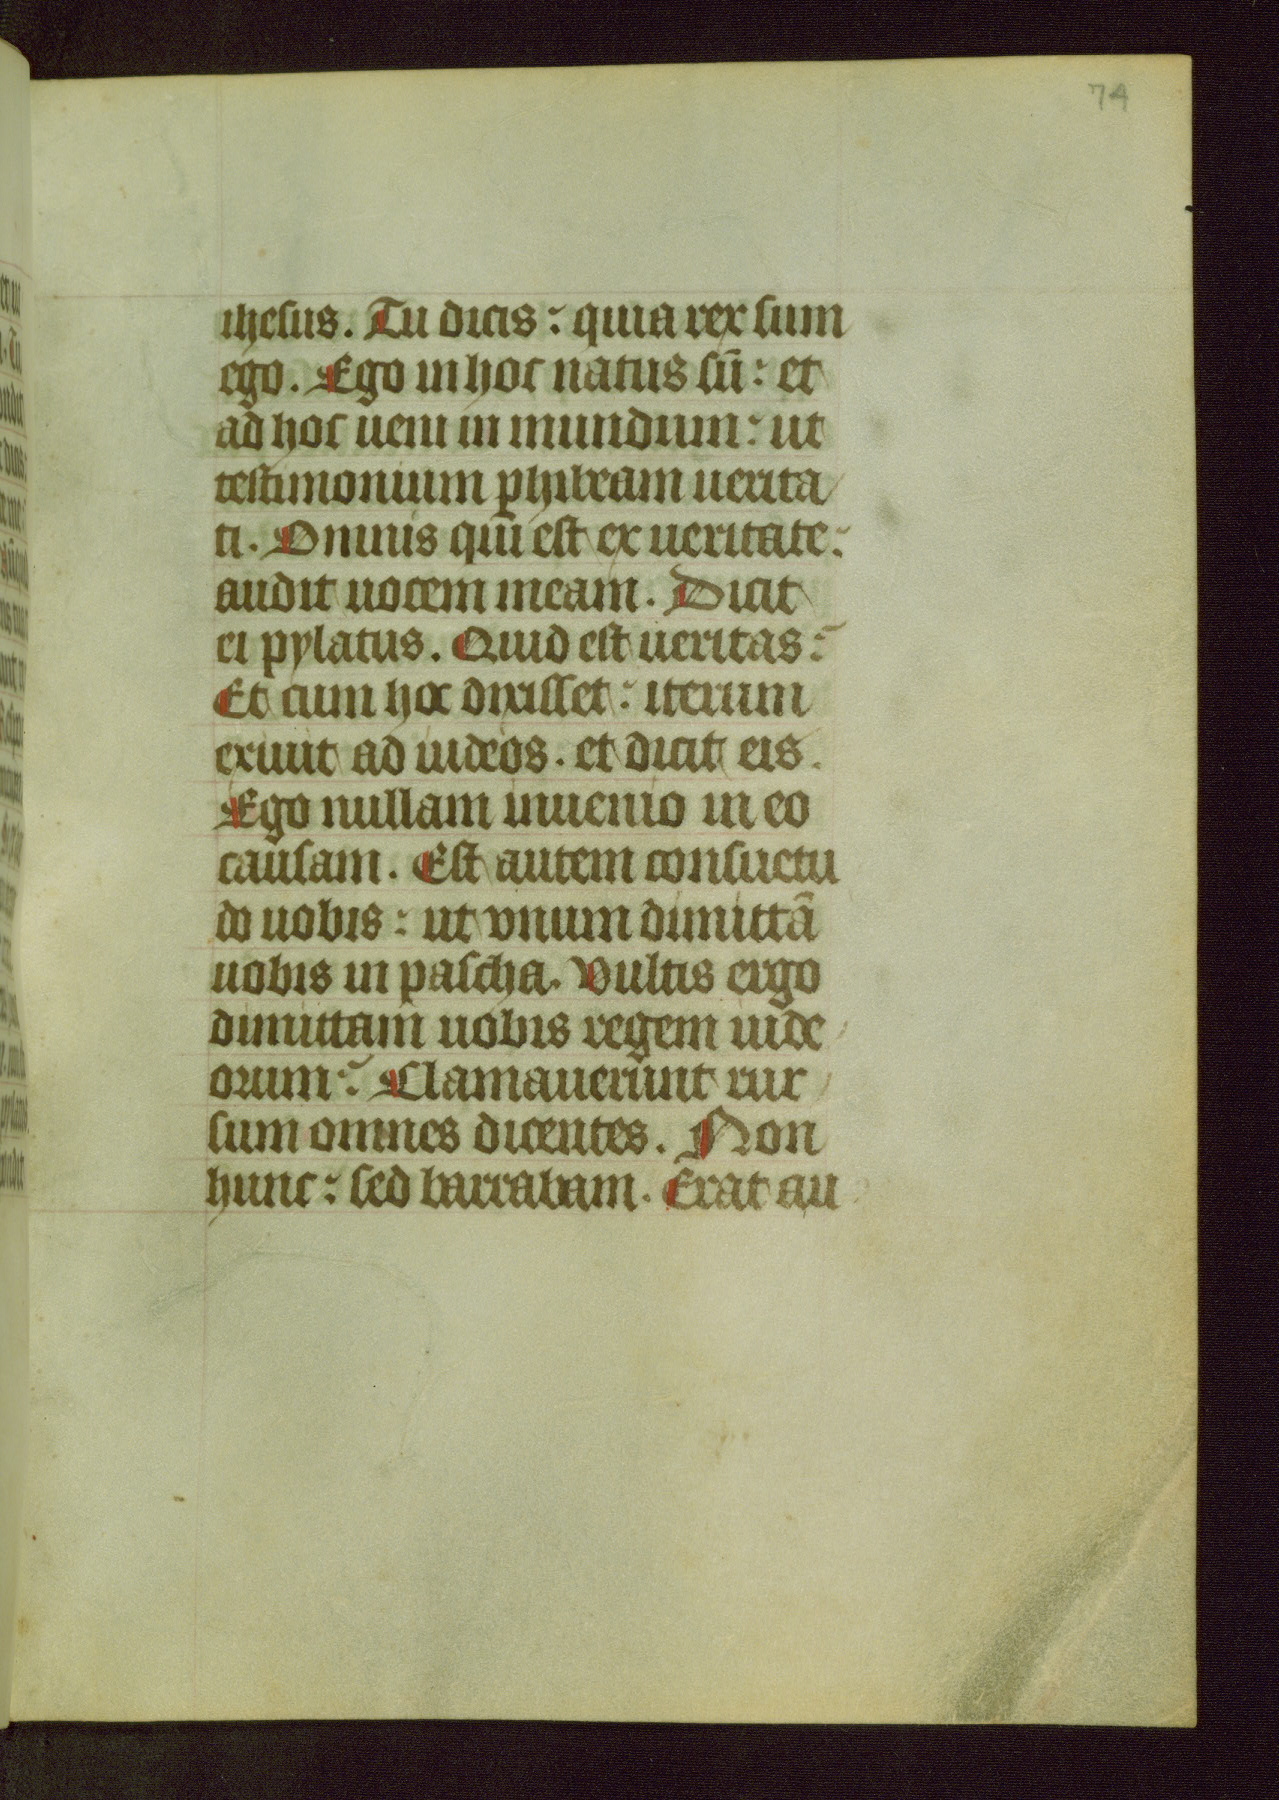 74
ihesus. Tu dicis: quia rex sum
ego. Ego in hoc natus sū: et
ad hoc ueni in mundum: ut
testimonium phibeam uerita
ti. Omnis qui est ex ueritate:
audit uocem meam. Dicit
ei pylatus. Quid est ueritas:
Et cum hoc dixisset: iterum
exiuit ad iudeos. et dicit eis.
Ego nullam inuenio in eo
causam. Est autem consuetu
do uobis: ut vnum dimittā
uobis in pascha. Vultis ergo
dimittam uobis regem iude
orum: Clamauerunt rur
sum omnes dicentes. Non
hunc: sed barrabam. Erat au